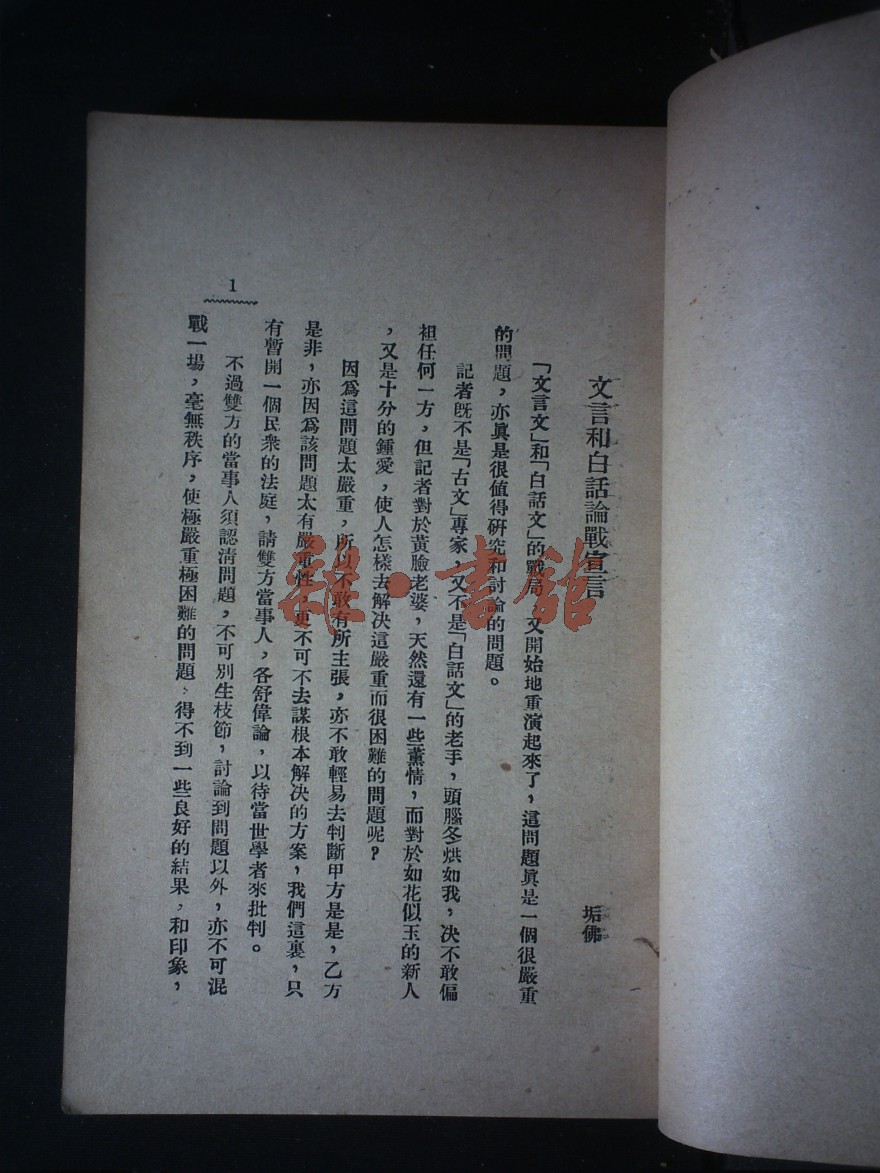 文言和白話論戰宣言
垢佛
「文言文」和「白話文」的戰局，又開始地重演起來了，這問題眞是一個很嚴重
的問題，亦眞是很值得硏究和討論的問題。
記者旣不是「古文」專家，又不是「白話文」的老手，頭腦冬烘如我，决不敢偏
袒任何一方，但記者對於黃臉老婆，天然還有一些薰情，而對於如花似玉的新人
，又是十分的鍾愛，使人怎樣去解決這嚴重而很困難的問題呢？
因爲這問題太嚴重，所以不敢有所主張，亦不敢輕易去判斷甲方是是，乙方
是非，亦因爲該問題太有嚴重性，更不可不去謀根本解決的方案，我們這裏，只
有暫開一個民衆的法庭，請雙方當事人，各舒偉論，以待當世學者來批判。
不過雙方的當事人須認淸問題，不可別生枝節，討論到問題以外，亦不可混
戰一場，毫無秩序，使極嚴重極困難的問題，得不到一些良好的結果，和印象，
1
雜·書舘